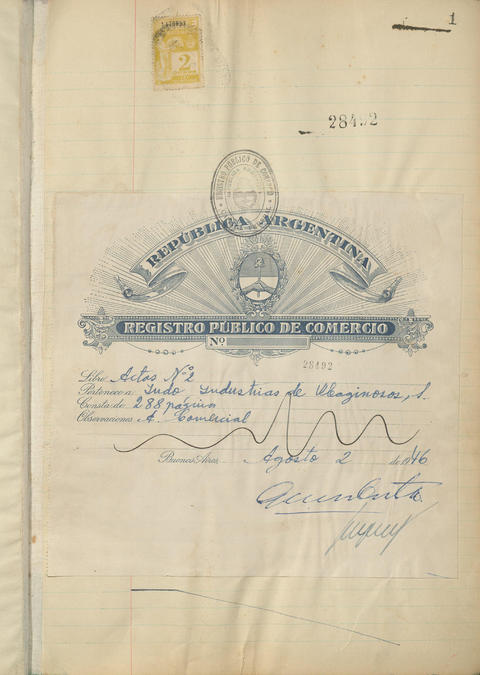 1
2
28492
REGISTRO PÚBLICO DE COMERCIO
REPÚBLICA ARGENTINA
REGISTRO PÚBLICO DE COMERCIO
Nº
28492
Libro Actas Nº 2
Pertenece a Indo Industrias de Oleaginosos, S.
Consta de 288 páginas
Observaciones A. Comercial
Buenos Aires Agosto 2 de 1946